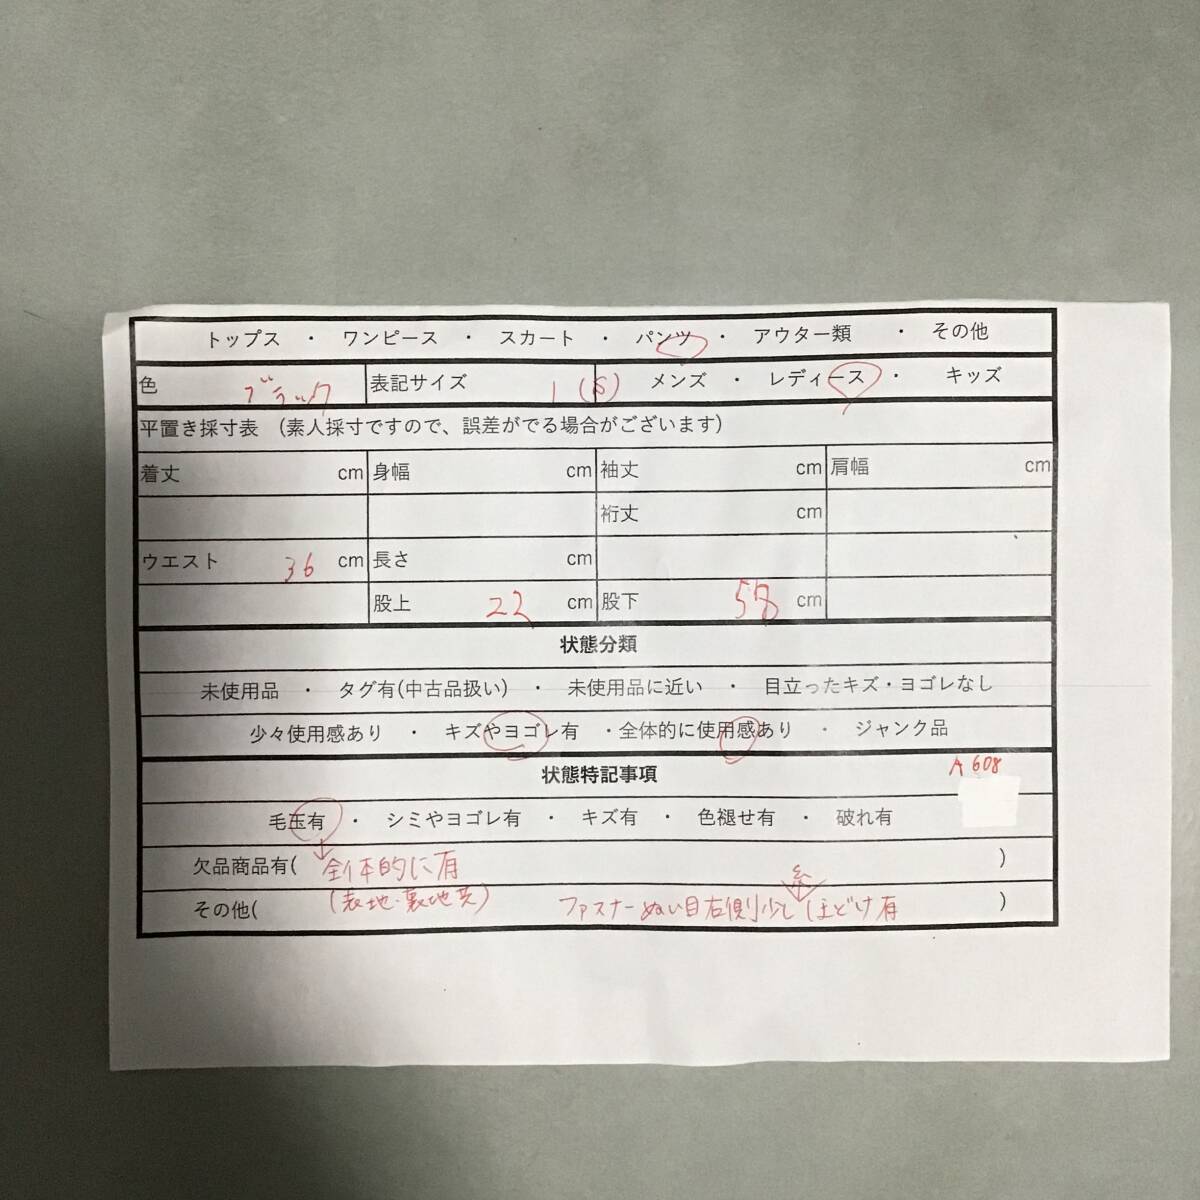 トップス ・ ワンピース ・ スカート ・ パンツ ・ アウター類 ・ その他
色 ブラック 表記サイズ 1(S) メンズ ・ レディース ・ キッズ
平置き採寸表 (素人採寸ですので、誤差がでる場合がございます)
着丈 cm 身幅 cm 袖丈 cm 肩幅 cm
裄丈 cm
ウエスト 36 cm 長さ cm
股上 22 cm 股下 58 cm
状態分類
未使用品 ・ タグ有(中古品扱い) ・ 未使用品に近い ・ 目立ったキズ・ヨゴレなし
少々使用感あり ・ キズやヨゴレ有 ・全体的に使用感あり ・ ジャンク品
状態特記事項 A608
毛玉有 ・ シミやヨゴレ有 ・ キズ有 ・ 色褪せ有 ・ 破れ有
欠品商品有( 全体的に有 )
(表地・裏地共)
糸
その他( ファスナーぬい目右側少しほどけ有 )